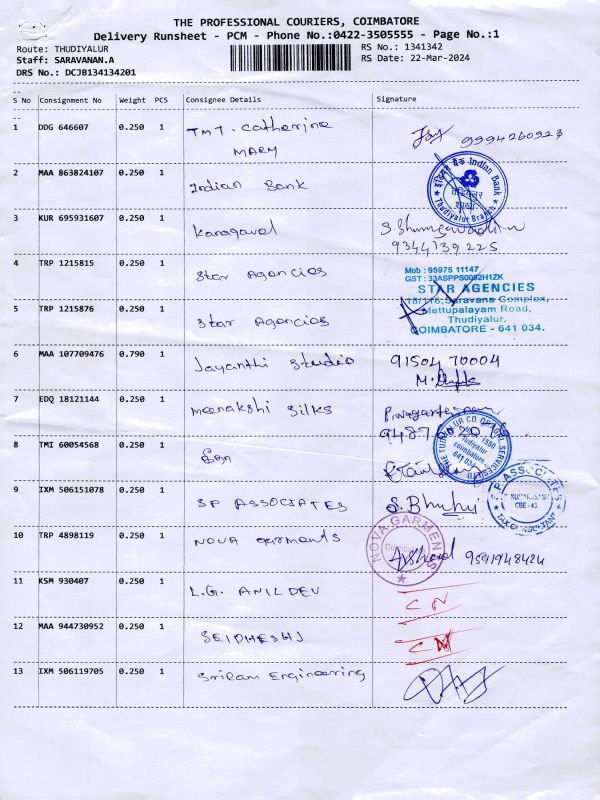 THE PROFESSIONAL COURIERS, COIMBATORE
Delivery Runsheet - PCM - Phone No.:0422-3505555 - Page No.:1
Route: THUDIYALUR RS No.: 1341342
Staff: SARAVANAN.A RS Date: 22-Mar-2024
DRS No.: DCJB134134201
S No Consignment No Weight PCS Consignee Details Signature
1 DDG 646607 0.250 1 TMT. Catherine 9994260923
MARY
2 MAA 863824107 0.250 1 Indian Bank
Indian Bank
Thudiyalur Branch
3 KUR 695931607 0.250 1 Karagavel
9344739225
4 TRP 1215815 0.250 1 Star Agencies
Mob : 95975 11147
GST : 33ASPPS0082H1ZK
STAR AGENCIES
18/116, Saravana Complex,
Mettupalayam Road,
Thudiyalur,
COIMBATORE - 641 034.
5 TRP 1215876 0.250 1 Star Agencies
6 MAA 107709476 0.790 1 Jayanthi Studio 91504 70004
7 EDQ 18121144 0.250 1 Meenakshi Silks
8 TMI 60054568 0.250 1
Thudiyalur
coimbatore
9 IXM 506151078 0.250 1 SP ASSOCIATES
CBE-43
TAX CONSULTANT
10 TRP 4898119 0.250 1 NOVA GARMENTS 9591948424
NOVA GARMENTS
11 KSM 930407 0.250 1 L.G. ANILDEV CN
12 MAA 944730952 0.250 1 CN
13 IXM 506119705 0.250 1 Sriram Engineering